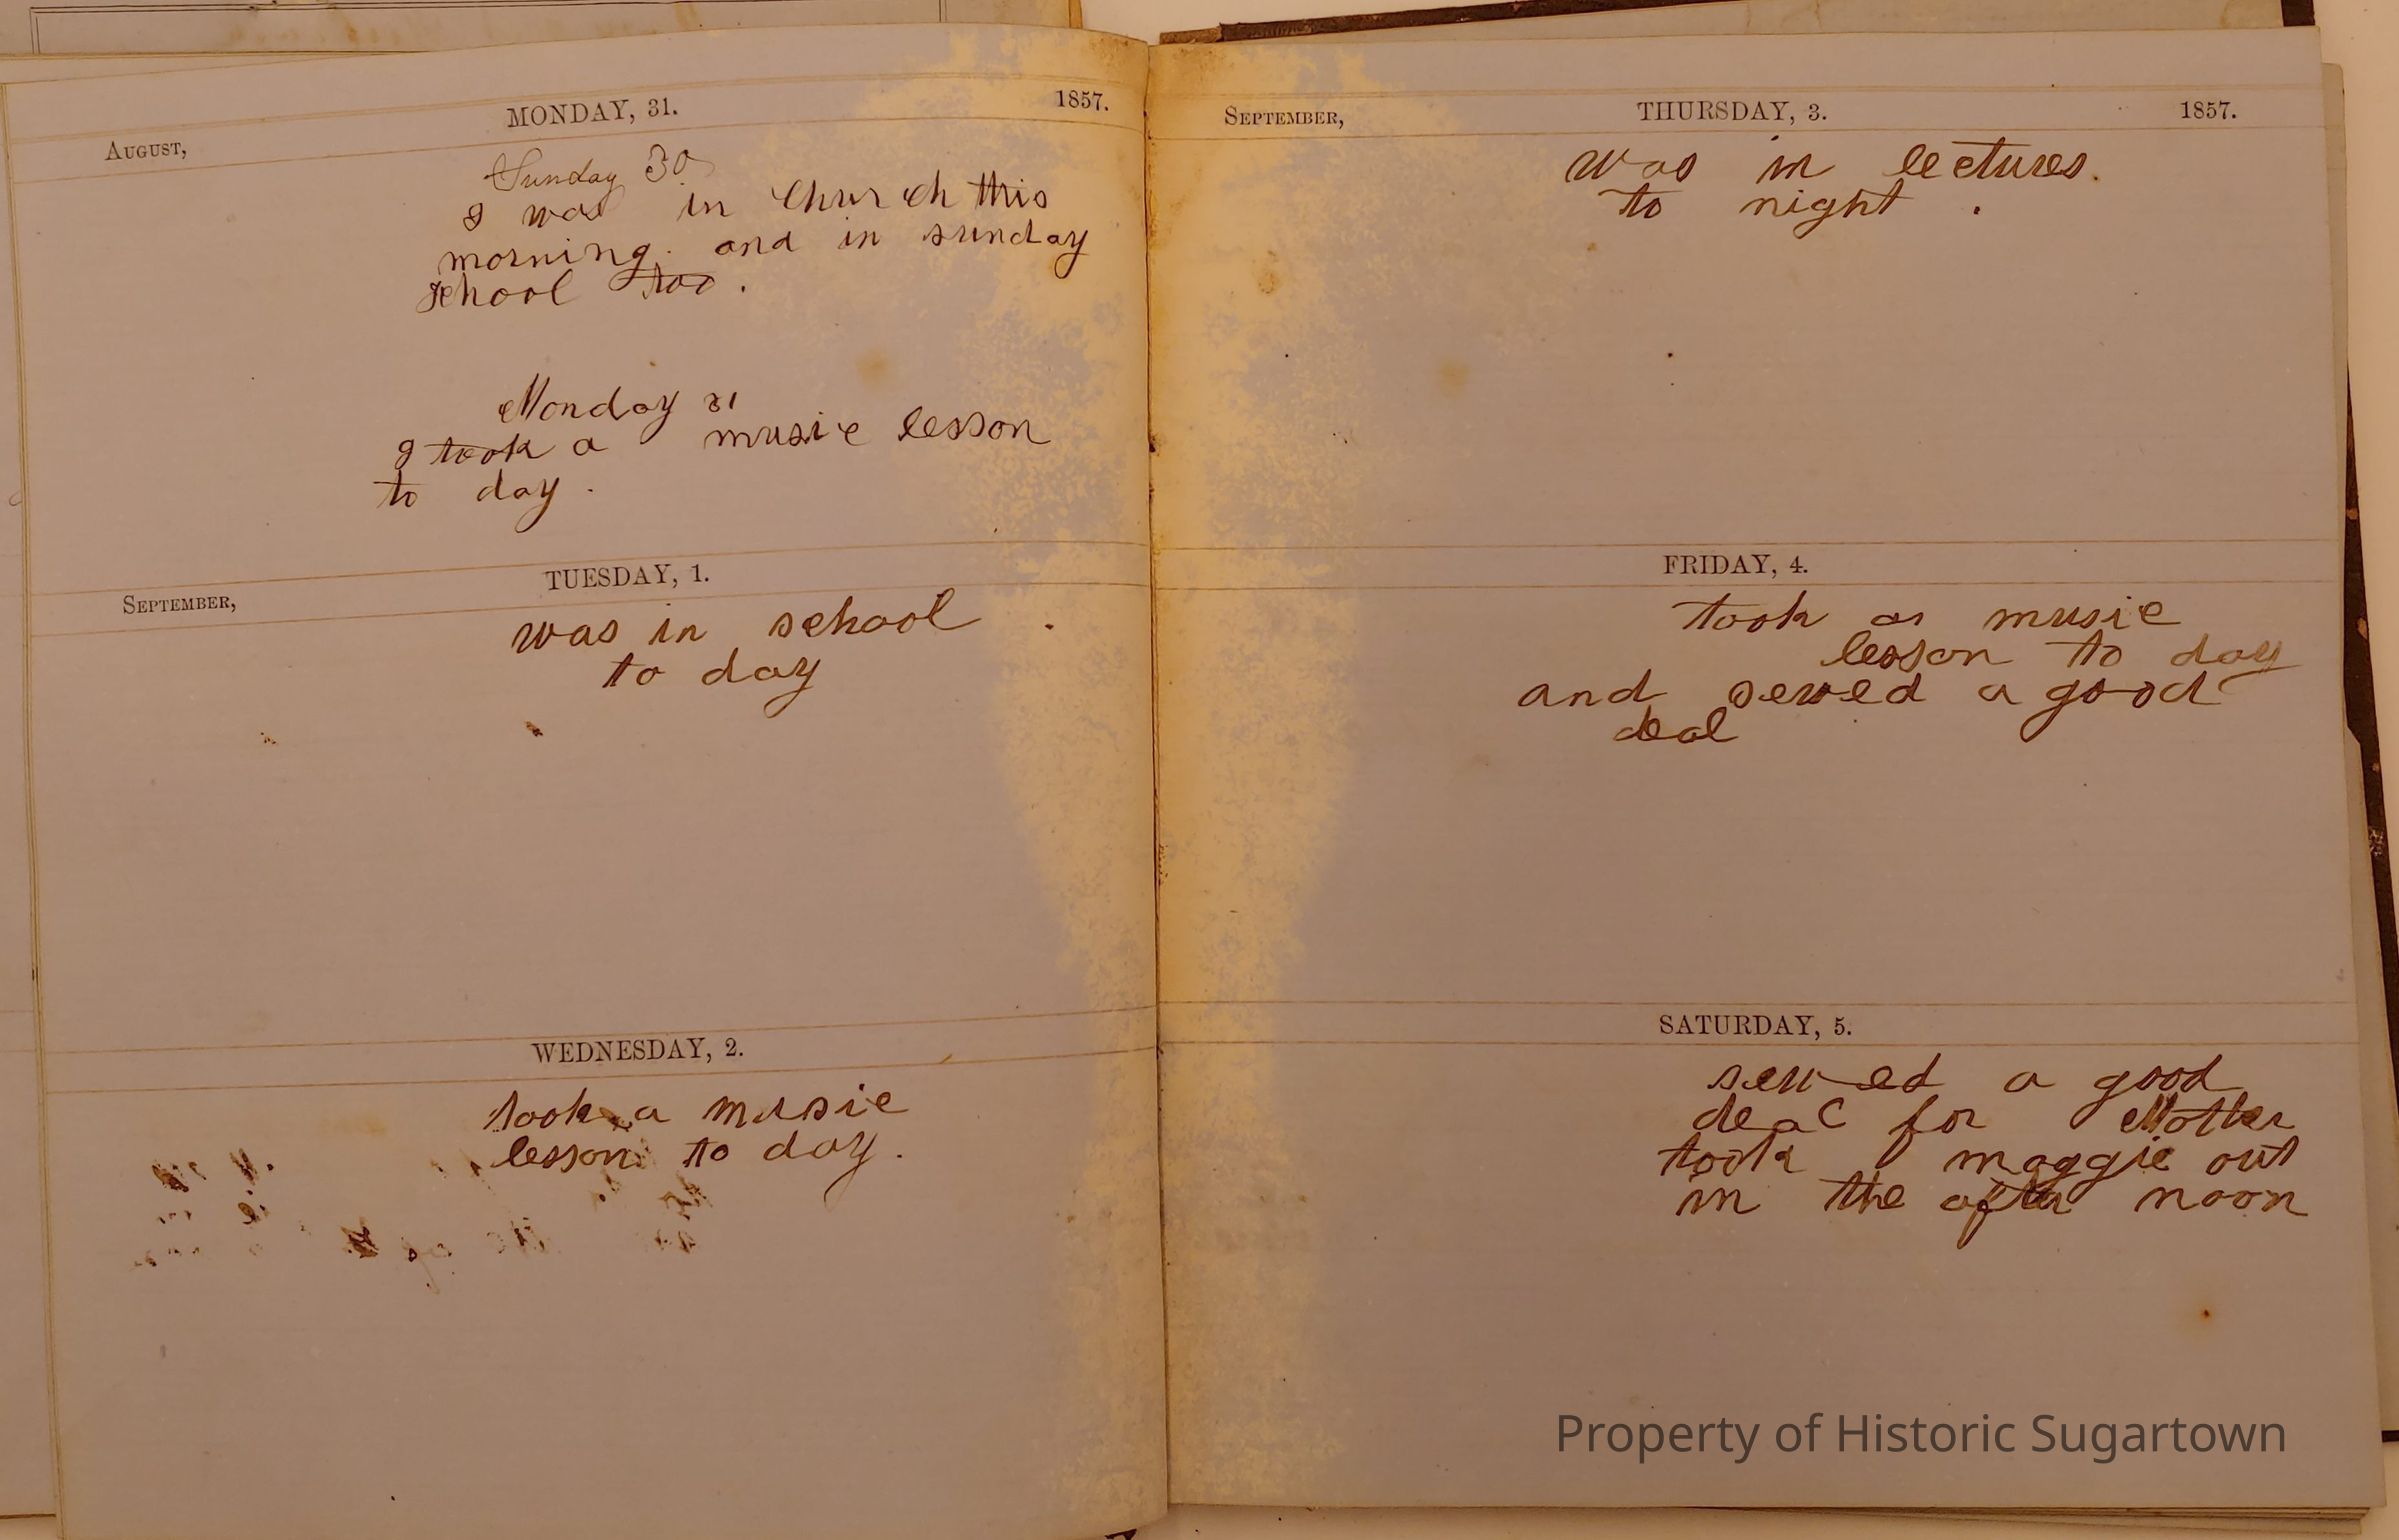 MONDAY, 31. 1857.
AUGUST,
Sunday 30
I was in Church this
morning. and in sunday
school too.
Monday 31
I took a music lesson
to day.
TUESDAY, 1.
SEPTEMBER,
was in school.
to day
WEDNESDAY, 2.
took a music
lesson to day.
SEPTEMBER, THURSDAY, 3. 1857.
was in lectures.
to night.
FRIDAY, 4.
took a music
lesson to day
and sewed a good
deal
SATURDAY, 5.
sewed a good
deal for Mother
took maggie out
in the after noon
Property of Historic Sugartown